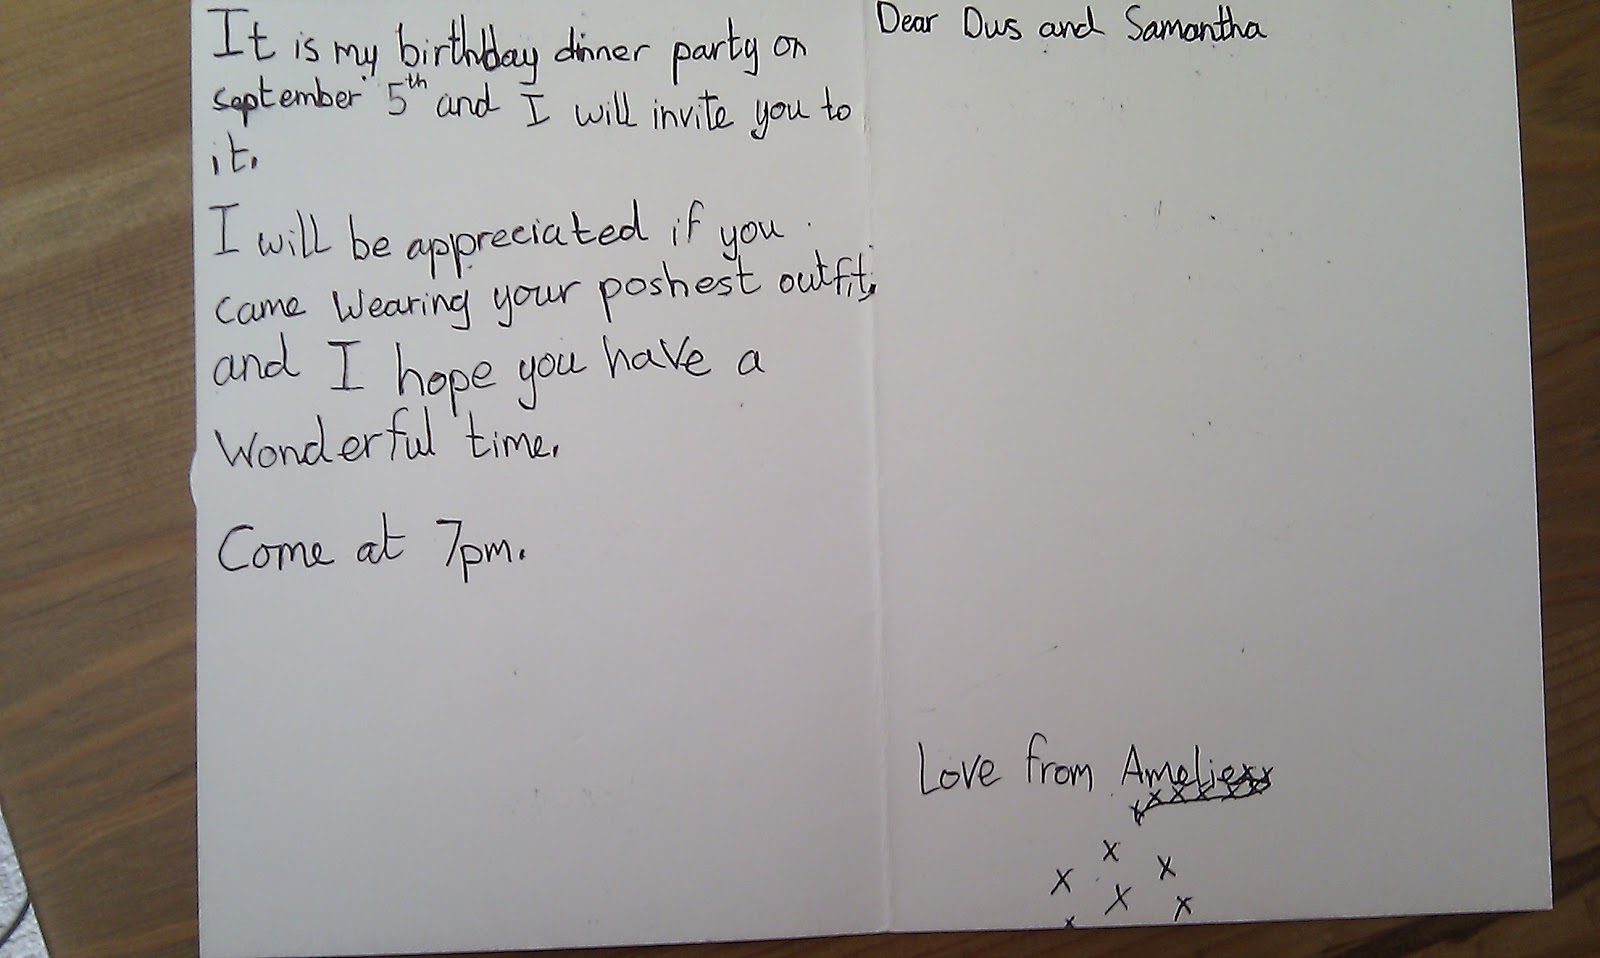 It is my birthday dinner party on
september 5th and I will invite you to
it.
I will be appreciated if you
came wearing your poshest outfit,
and I hope you have a
wonderful time.
Come at 7pm.
Dear Dws and Samantha
Love from Ameliexx
xxxxxx
x
x x
x x
x